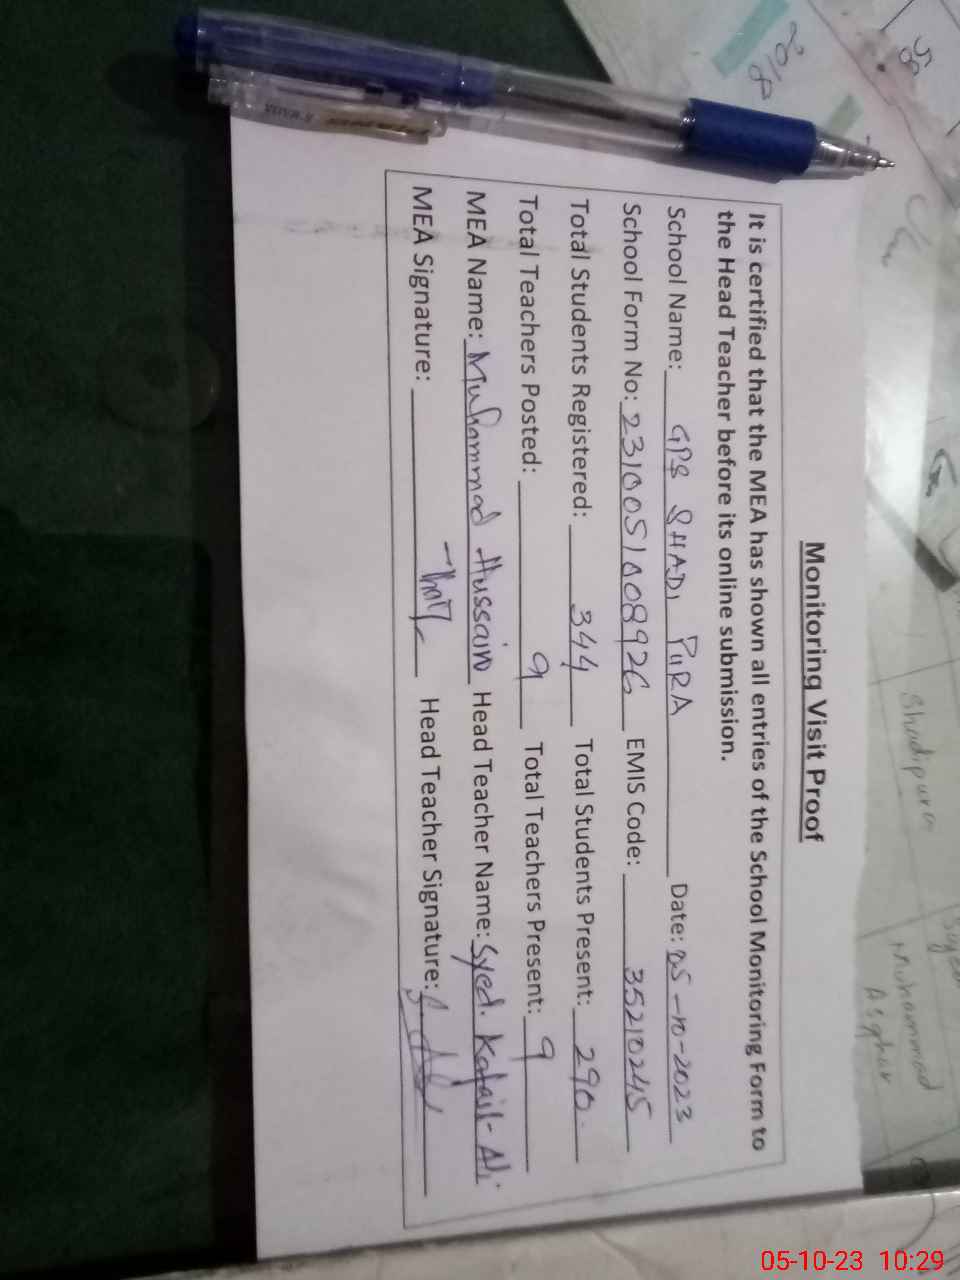 Monitoring Visit Proof
It is certified that the MEA has shown all entries of the School Monitoring Form to
the Head Teacher before its online submission.
School Name: GPS SHADI PURA Date: 05-10-2023
School Form No: 2310051008926 EMIS Code: 35210245
Total Students Registered: 344 Total Students Present: 290
Total Teachers Posted: 9 Total Teachers Present: 9
MEA Name: Muhammad Hussain Head Teacher Name: Syed. Kafail-Ali
MEA Signature: Head Teacher Signature:
2018
58
Shadipura
Muhammad
Asghar
05-10-23 10:29